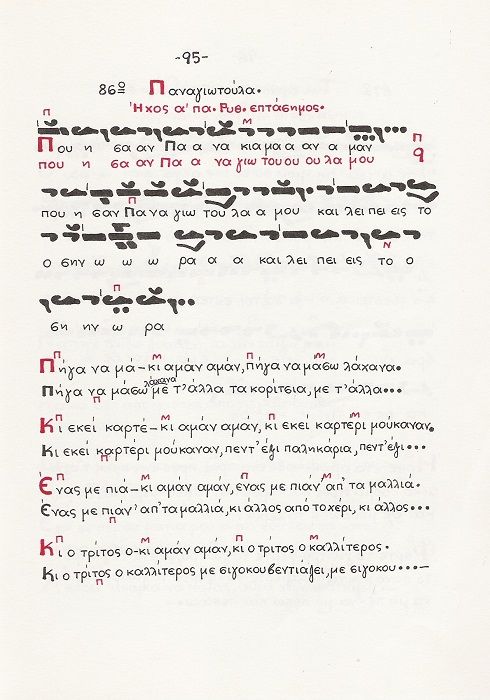 -95-
86ο Παναγιωτούλα.
Ήχος α' πα. Ρυθ. επτάσημος.
Που η σα αν Πα α να κι α μα α αν α μαν
που η σα αν Πα α να γιω του ου ου λα μου
που η σαν Πανα γιω του λα α μου και λει πει εις το
ο σην ω ω ω ρα α α και λει πει εις το ο
ση ην ω ρα
Πήγα να μά-κι αμάν αμάν, πήγα να μάσω λάχανα.
Πήγα να μάσω λάχανα με τ' άλλα τα κορίτσια, με τ' άλλα...
Κι εκεί καρτέ-κι αμάν αμάν, κι εκεί καρτέρι μούκαναν.
Κι εκεί καρτέρι μούκαναν, πεντ' έξι παληκάρια, πεντ' έξι...
Ένας με πιά-κι αμάν αμάν, ένας με πιάν' απ' τα μαλλιά.
Ένας με πιάν' απ' τα μαλλιά, κι άλλος από το χέρι, κι άλλος...
Κι ο τρίτος ο-κι αμάν αμάν, κι ο τρίτος ο καλλίτερος.
Κι ο τρίτος ο καλλίτερος με σιγοκουβεντιάζει, με σιγοκου...-